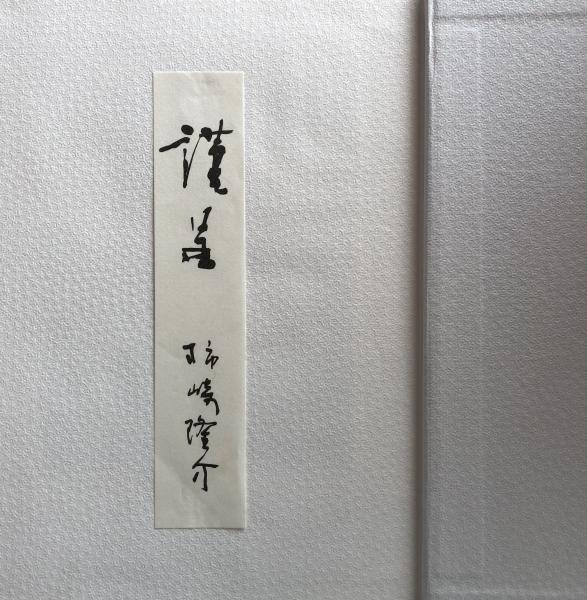 謹呈
柿崎隆介